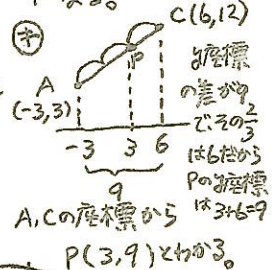 ㋖
C(6,12)
P
A
(-3,3)
-3 3 6
9
y座標
の差が9
で、その2/3
は6だから
Pのy座標
は3+6=9
A,Cの座標から
P(3,9)とわかる。